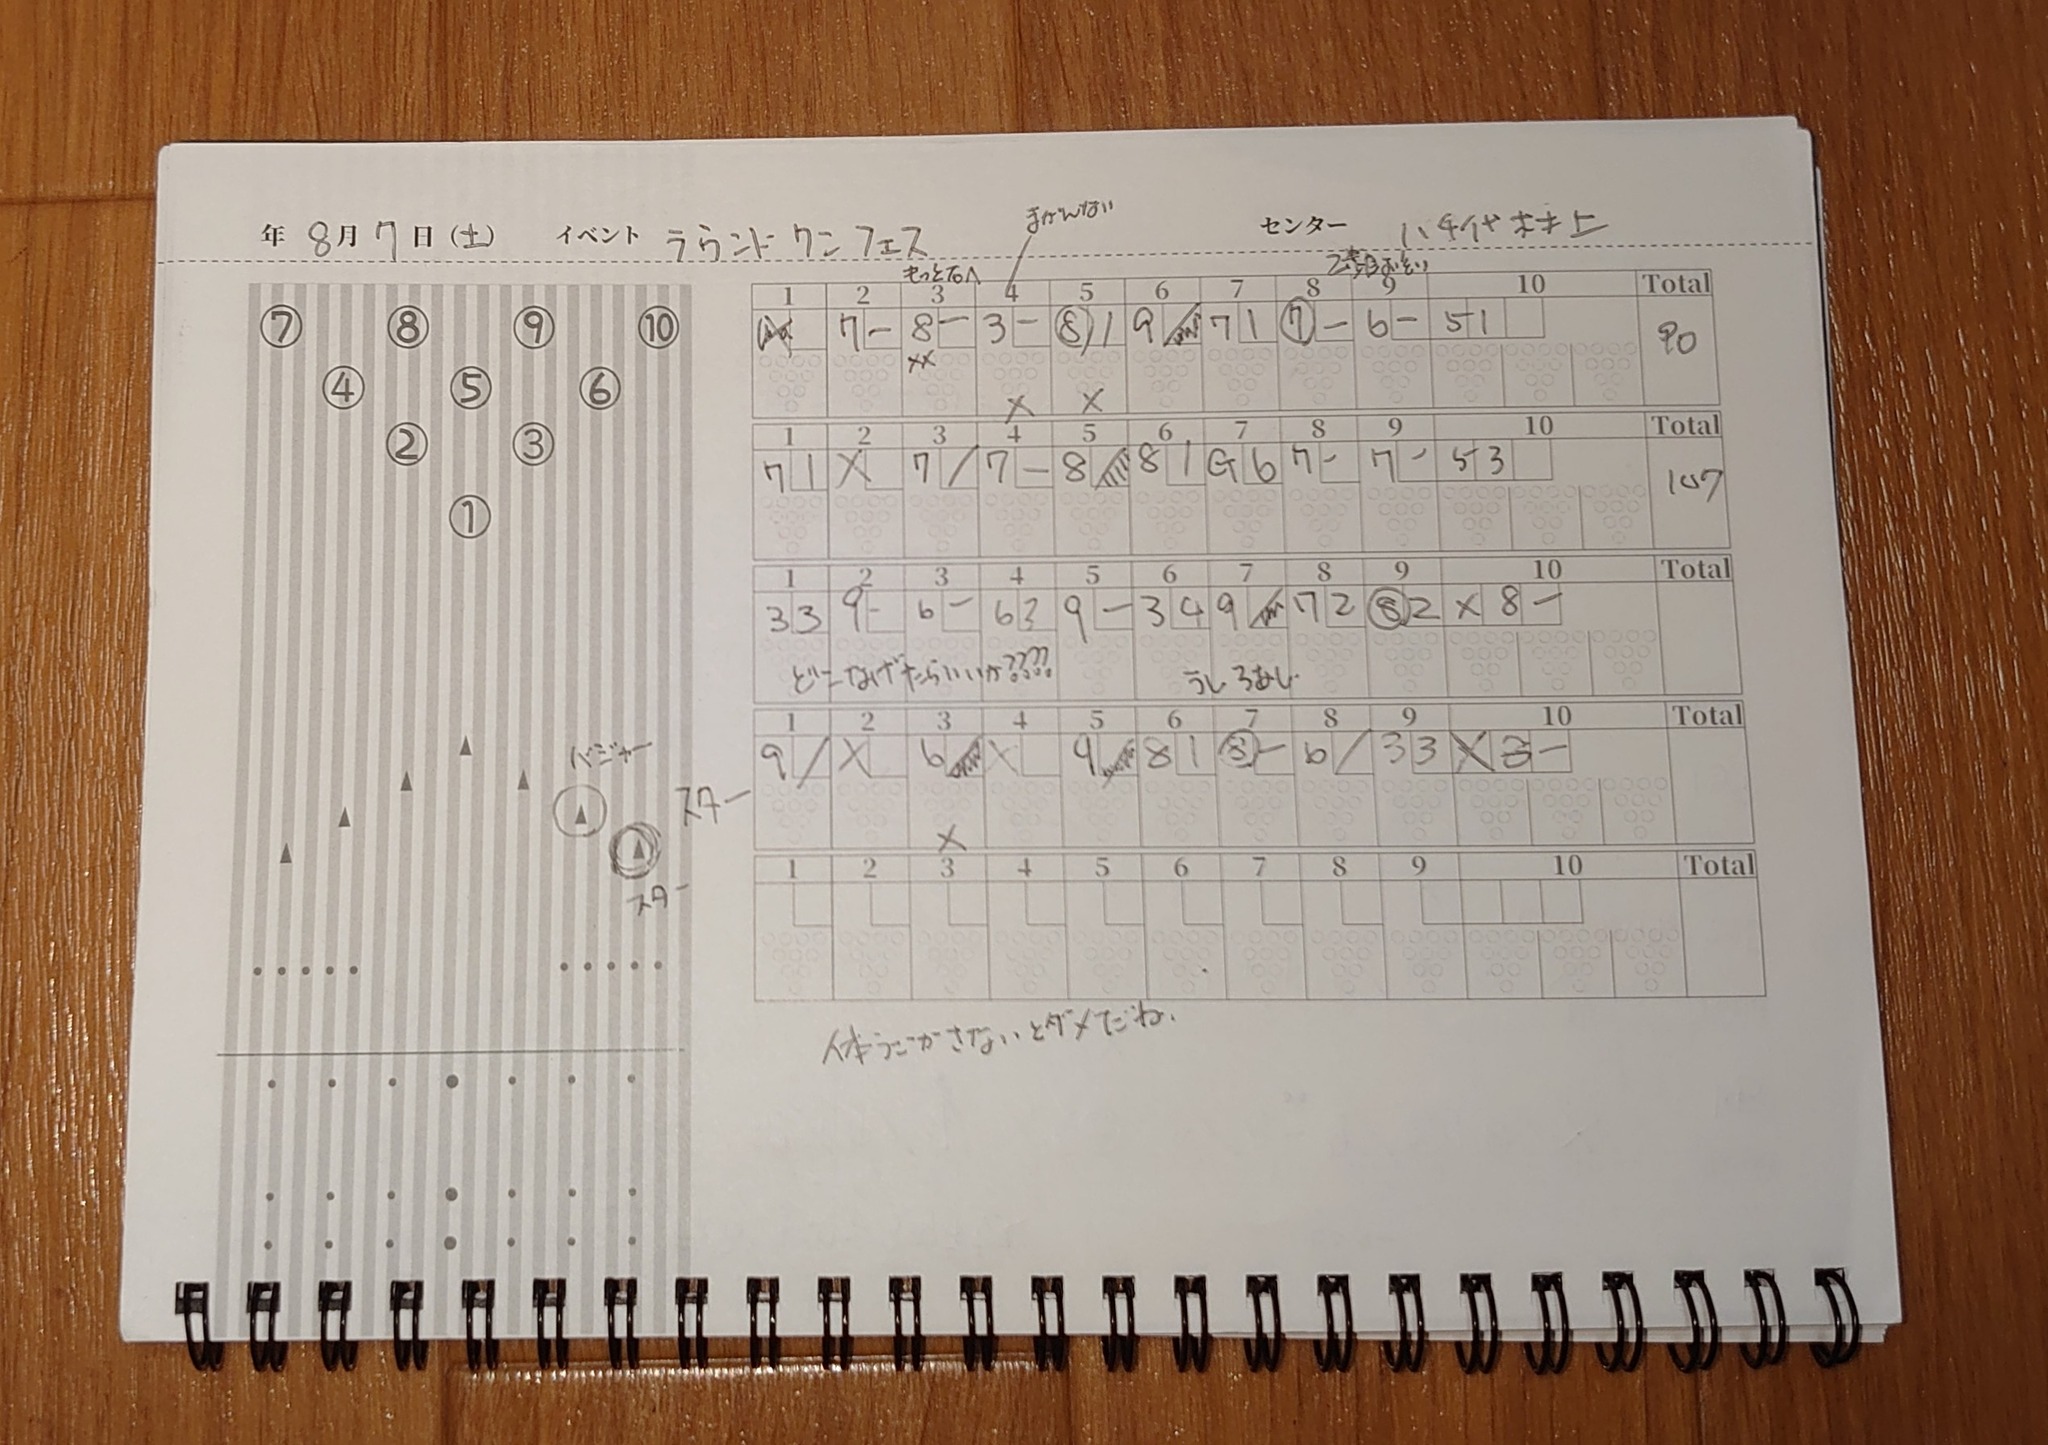 まがんない
年 8月 7日 (土) イベント ラウンドワンフェス センター 八千代村上
もっと右へ
1 2 3 4 5 6 7 8 9 10 Total
7 - 8 - 3 - ⑧ 1 9 / 7 1 ⑦ - 6 - 5 1 90
×× × ×
1 2 3 4 5 6 7 8 9 10 Total
7 1 X 7 / 7 - 8 / 8 1 G 6 7 - 7 - 5 3 107
1 2 3 4 5 6 7 8 9 10 Total
3 3 9 - 6 - 6 3 9 - 3 4 9 / 7 2 ⑧ 2 X 8 -
どこなげたらいいか????
うしろあし
1 2 3 4 5 6 7 8 9 10 Total
9 / X 6 / X 9 / 8 1 ⑧ - 6 / 3 3 X 3 -
×
1 2 3 4 5 6 7 8 9 10 Total
体うごかさないとダメだね.
⑦ ⑧ ⑨ ⑩
④ ⑤ ⑥
② ③
①
バジャー
スター
スター